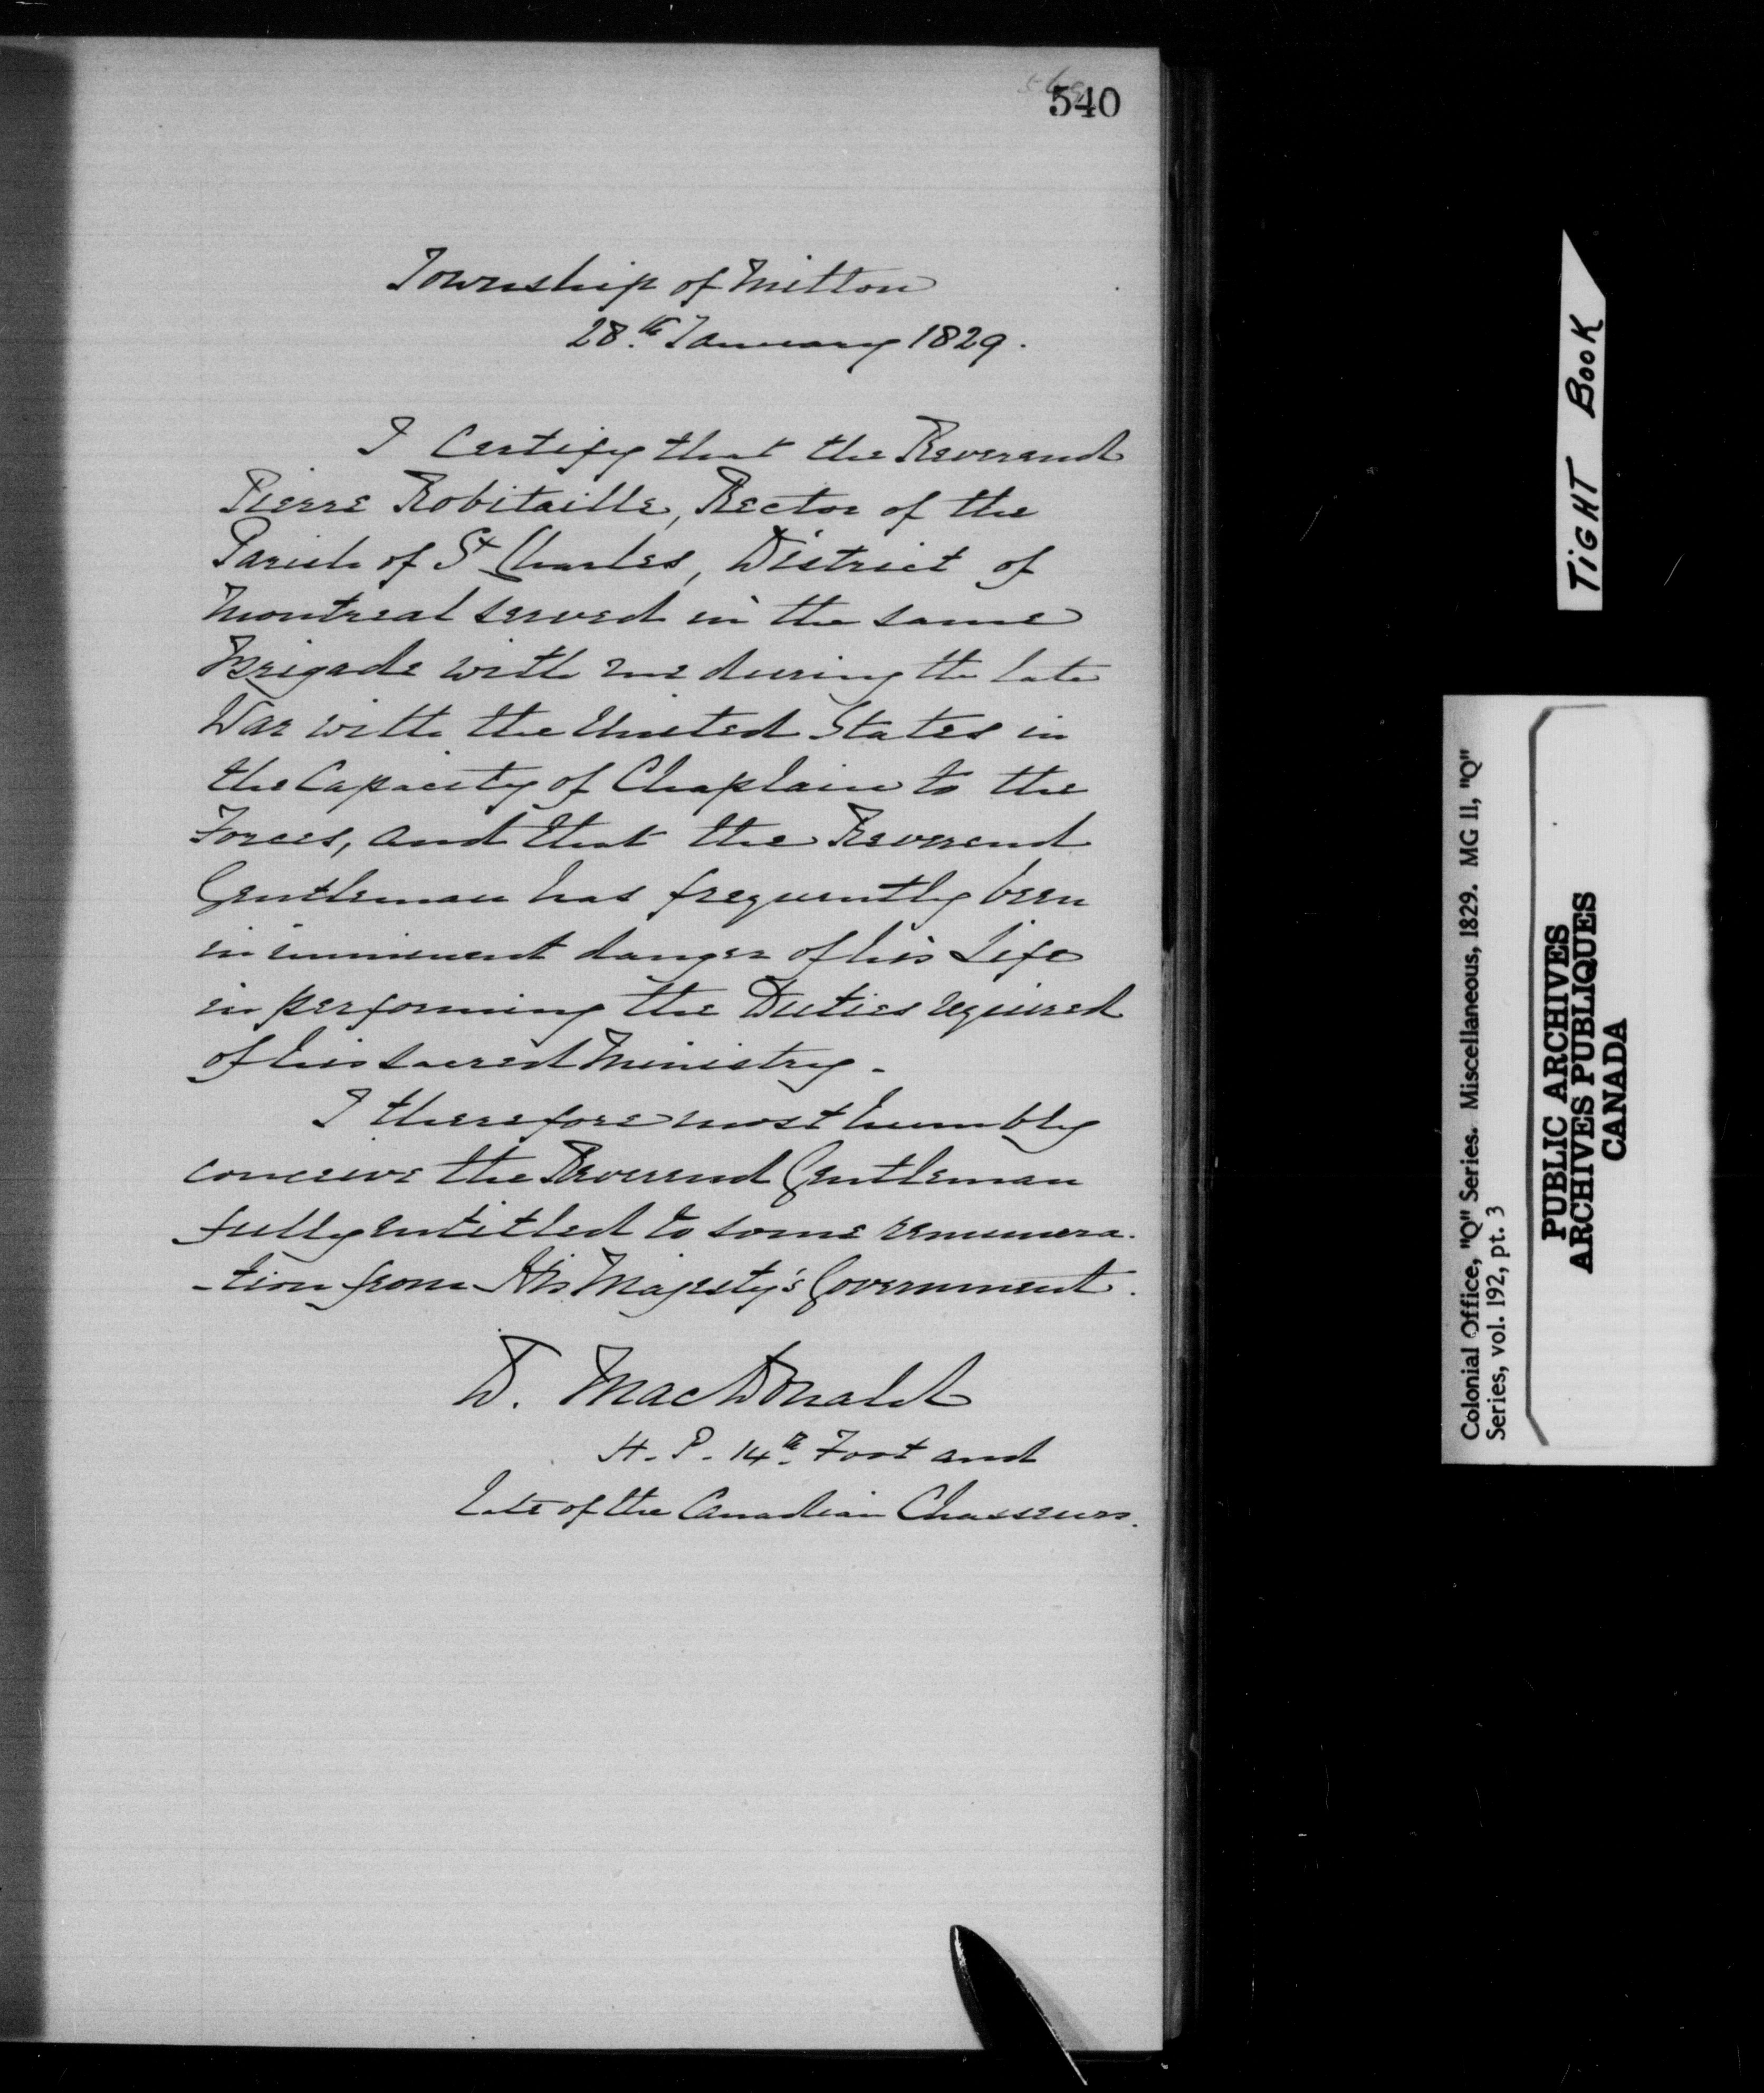 540
Township of Milton
28.th January 1829.
I Certify that the Reverend
Pierre Robitaille, Rector of the
Parish of St Charles, District of
Montreal served in the same
Brigade with me during the late
War with the United States in
the Capacity of Chaplain to the
Forces, and that the Reverend
Gentleman has frequently been
in imminent danger of his Life
in performing the Duties required
of his sacred Ministry.
I therefore most humbly
conceive the Reverend Gentleman
fully entitled to some remunera-
-tion from His Majesty's Government.
D. MacDonald
H. P. 14th Foot and
late of the Canadian Chasseurs.
TIGHT BOOK
Colonial Office, "Q" Series. Miscellaneous, 1829. MG 11, "Q"
Series, vol. 192, pt. 3
PUBLIC ARCHIVES
ARCHIVES PUBLIQUES
CANADA